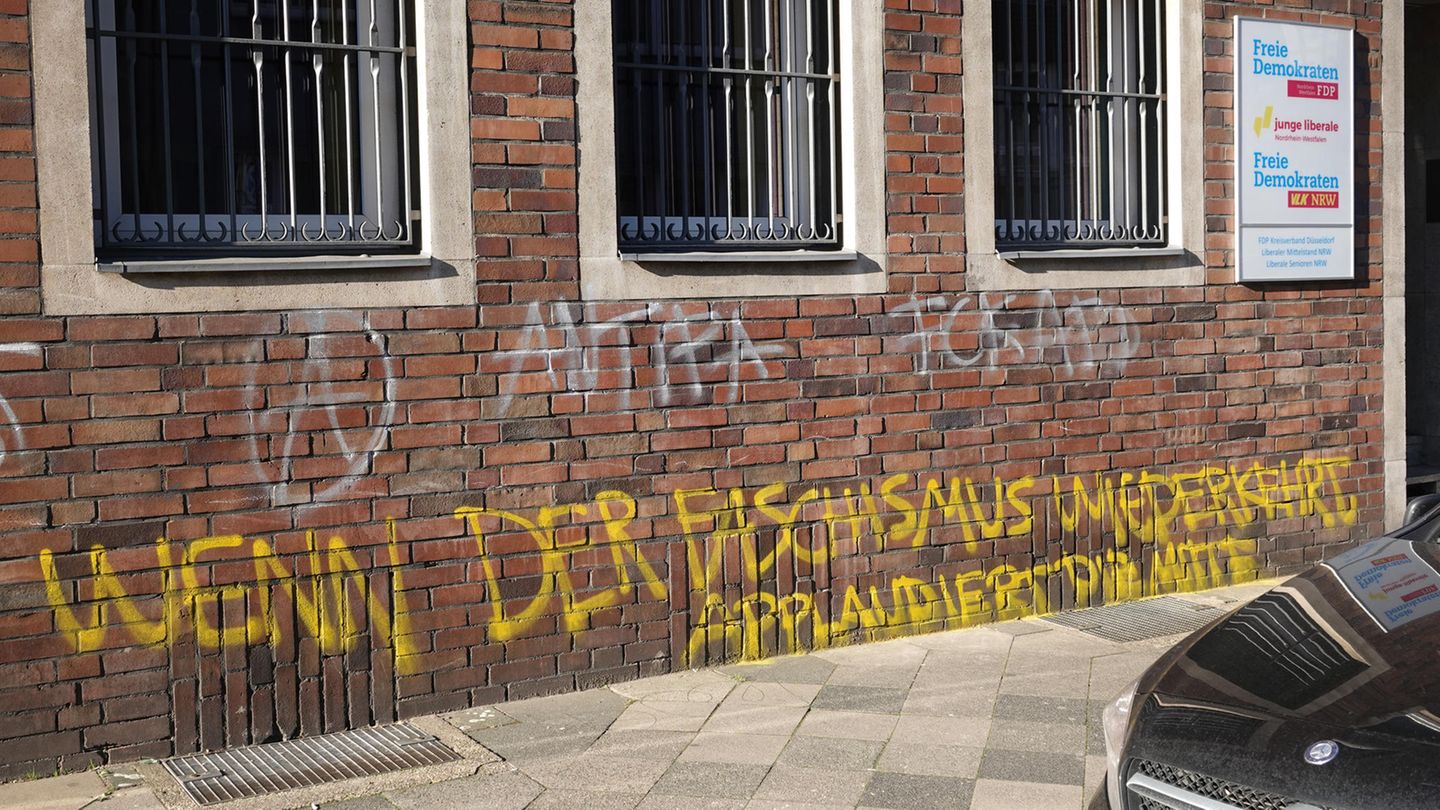 Freie
Demokraten
Nordrhein
Westfalen
FDP
junge liberale
Nordrhein-Westfalen
Freie
Demokraten
VLK NRW
FDP Kreisverband Düsseldorf
Liberaler Mittelstand NRW
Liberale Senioren NRW
A ANTIFA
WENN DER FASCHISMUS WIEDERKEHRT
APPLAUDIERT DIE MITTE